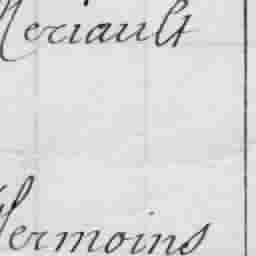 Meriault
Vermoins